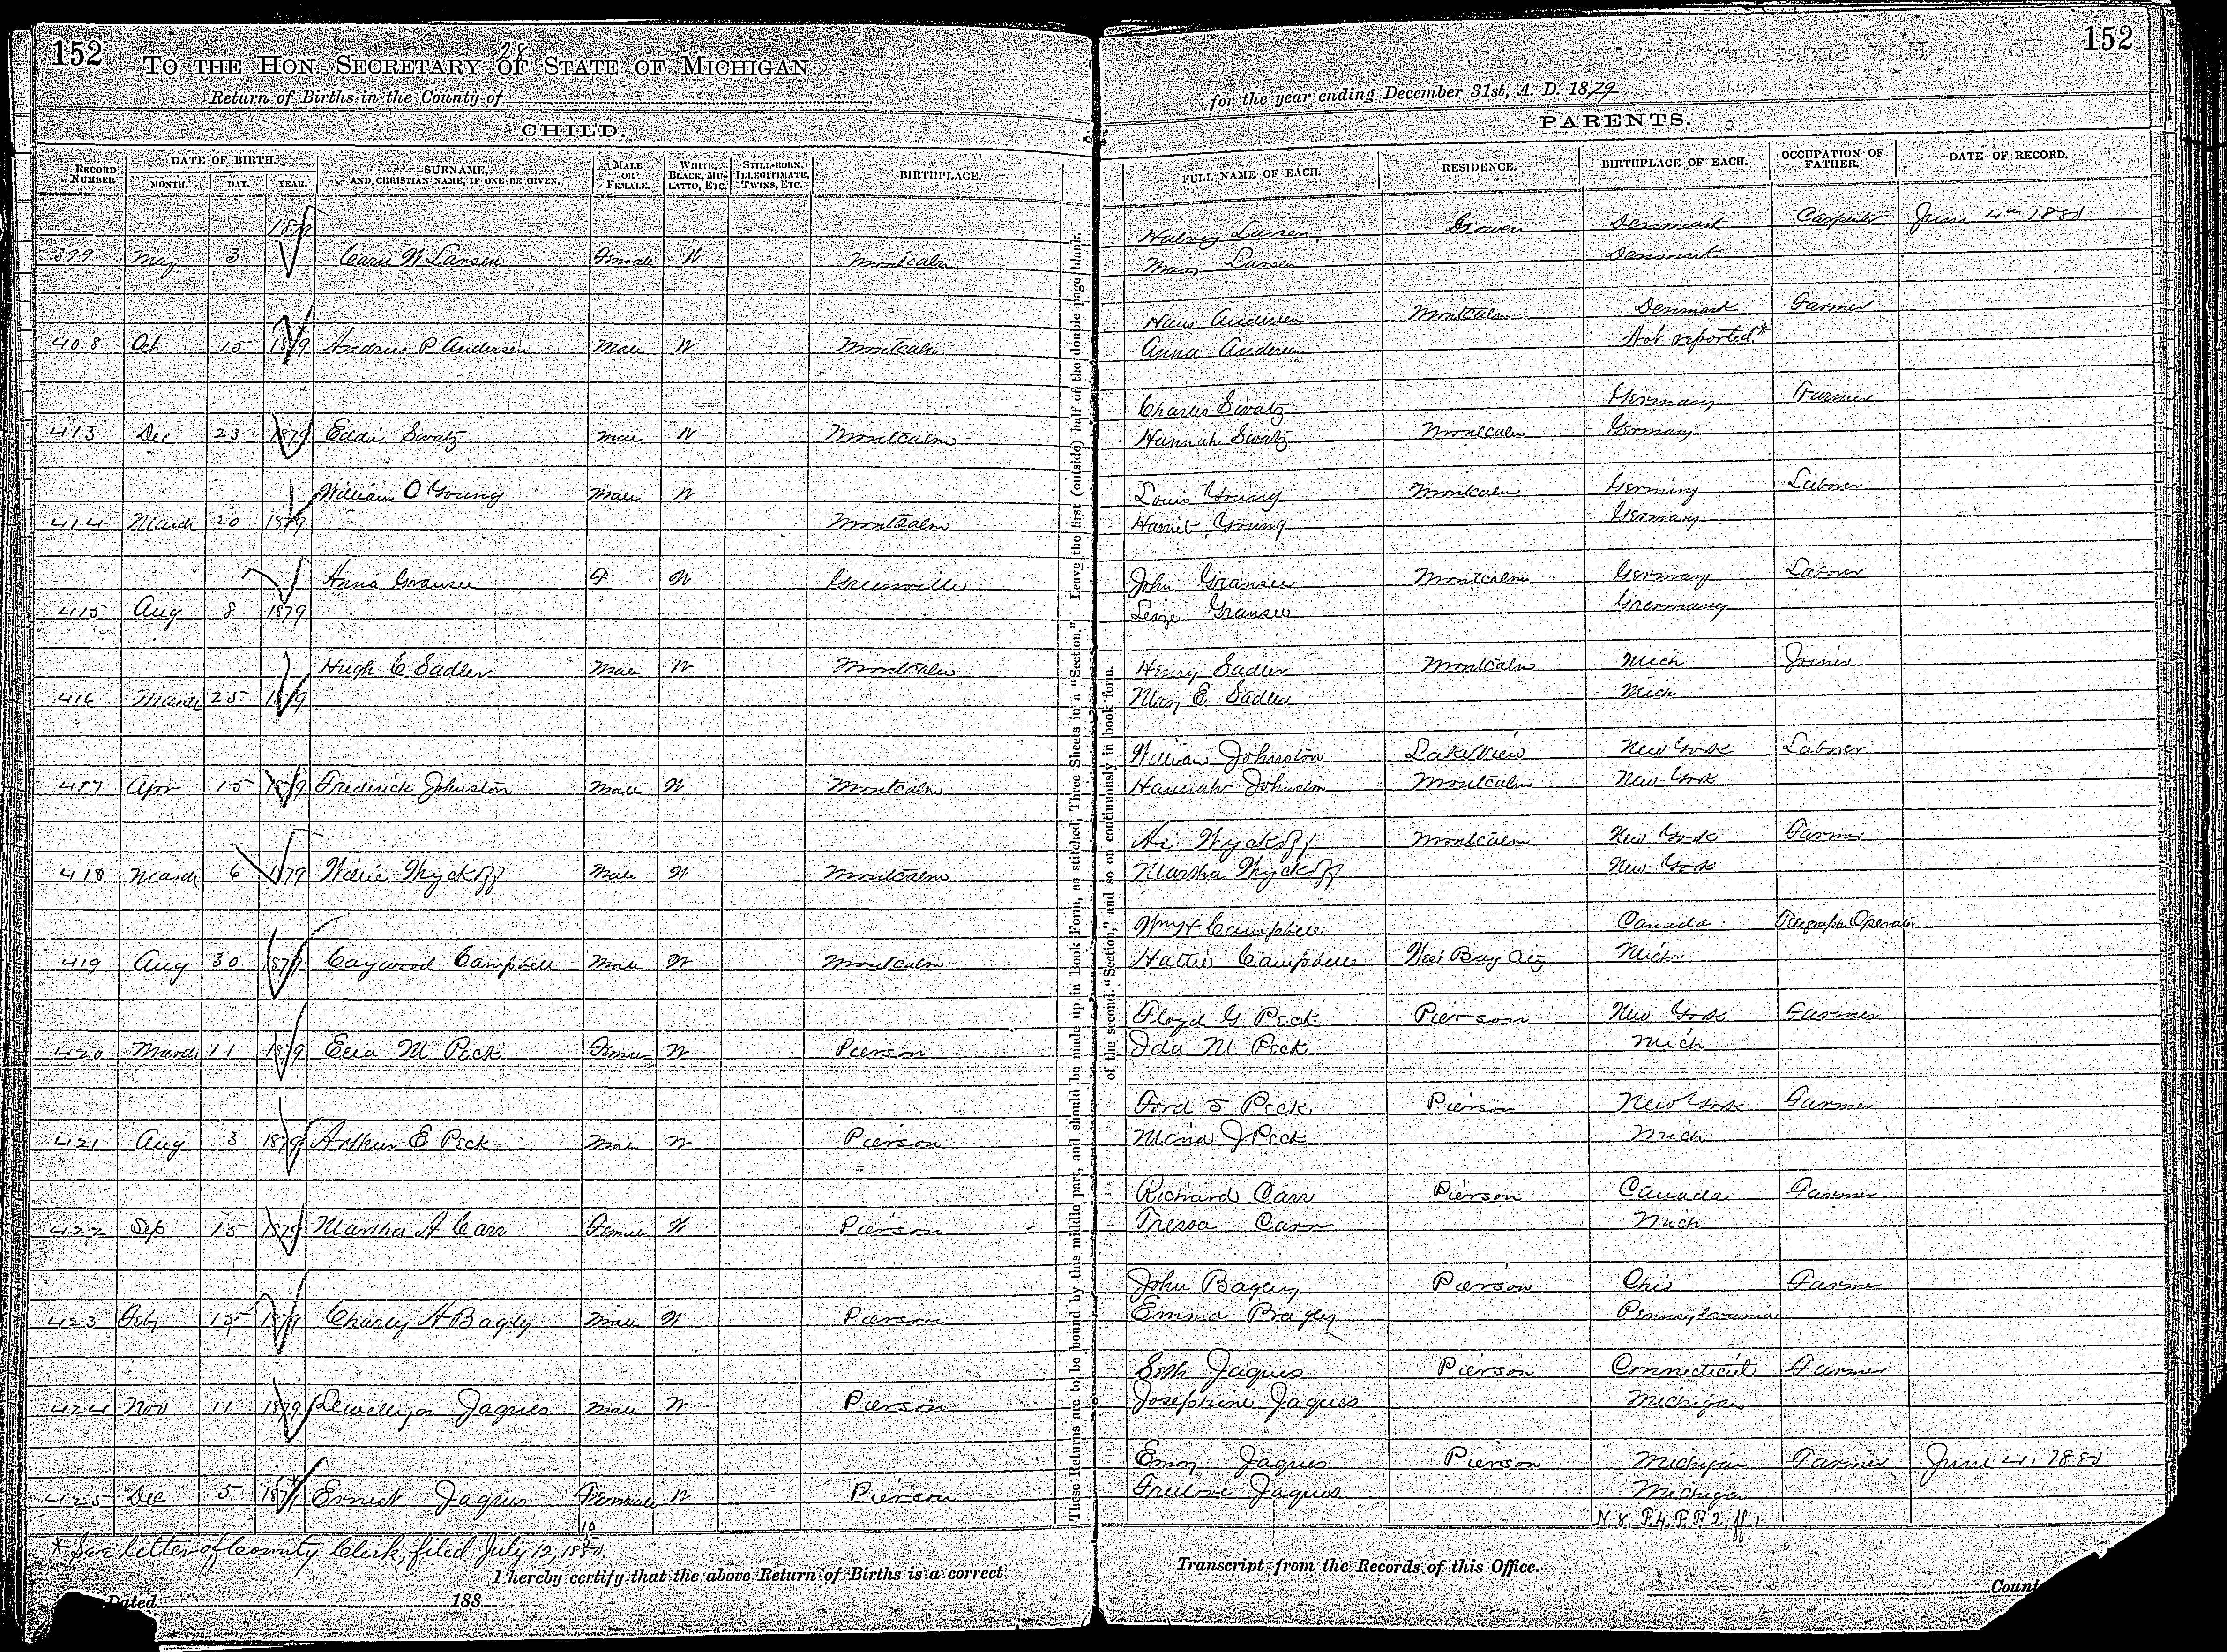 152
28
TO THE HON. SECRETARY OF STATE OF MICHIGAN:
Return of Births in the County of
CHILD.
RECORD NUMBER. DATE OF BIRTH. MONTH. DAY. YEAR. SURNAME, AND CHRISTIAN NAME, IF ONE BE GIVEN. MALE OR FEMALE. WHITE, BLACK, MULATTO, ETC. STILL-BORN, ILLEGITIMATE, TWINS, ETC. BIRTHPLACE.
1879
399 May 3 Carie W Larsen Female W Montcalm
408 Oct 15 1879 Andrew P Andersen Male W Montcalm
413 Dec 23 1879 Eddie Swatz Male W Montcalm
William O Young Male W
414 March 20 1879 Montcalm
Anna Gransee F W Greenville
415 Aug 8 1879
Hugh C Sadler Male W Montcalm
416 March 25 1879
417 Apr 15 1879 Frederick Johnston Male W Montcalm
418 March 6 1879 Willie Wyckoff Male W Montcalm
419 Aug 30 1879 Caywood Campbell Male W Montcalm
420 March 11 1879 Ella M Peck Female W Pierson
421 Aug 3 1879 Arthur E Peck Male W Pierson
422 Sep 15 1879 Martha A Carr Female W Pierson
423 Feby 15 1879 Charley A Bagley Male W Pierson
424 Nov 11 1879 Llewellyn Jaques Male W Pierson
425 Dec 5 1879 Ernest Jaques Female W Pierson
10
* See letter of County Clerk, filed July 12, 1880.
I hereby certify that the above Return of Births is a correct
Dated 188
These Returns are to be bound by this middle part, and should be made up in Book Form, as stitched, Three Sheets in a "Section." Leave the first (outside) half of the double page blank.
of the second "Section," and so on continuously in book form.
152
for the year ending December 31st, A. D. 1879
PARENTS.
FULL NAME OF EACH. RESIDENCE. BIRTHPLACE OF EACH. OCCUPATION OF FATHER. DATE OF RECORD.
Larsen Gowen Denmark Carpenter June 4th 1880
Mary Larsen Denmark
Hans Andersen Montcalm Denmark Farmer
Anna Andersen Not reported*
Charles Swatz Germany Farmer
Hannah Swatz Montcalm Germany
Louis Young Montcalm Germany Laborer
Harriet Young Germany
John Gransee Montcalm Germany Laborer
Leize Gransee Germany
Henry Sadler Montcalm Mich Joiner
Mary E Sadler Mich
William Johnston LakeView New York Laborer
Hannah Johnston Montcalm New York
Ai Wyckoff Montcalm New York Farmer
Martha Wyckoff New York
Wm H Campbell Canada Telegraph Operator
Hattie Campbell West Bay City Mich
Floyd G Peck Pierson New York Farmer
Ida M Peck Mich
Ford S Peck Pierson New York Farmer
J Peck Mich
Richard Carr Pierson Canada Farmer
Tressa Carr Mich
John Bagley Pierson Ohio Farmer
Emma Bagley Pennsylvania
Seth Jaques Pierson Connecticut Farmer
Josephine Jaques Michigan
Emory Jaques Pierson Michigan Farmer June 4. 1880
Freelove Jaques Michigan
N. 8. F. 4. P. F. 2, ff 1
Transcript from the Records of this Office.
Count